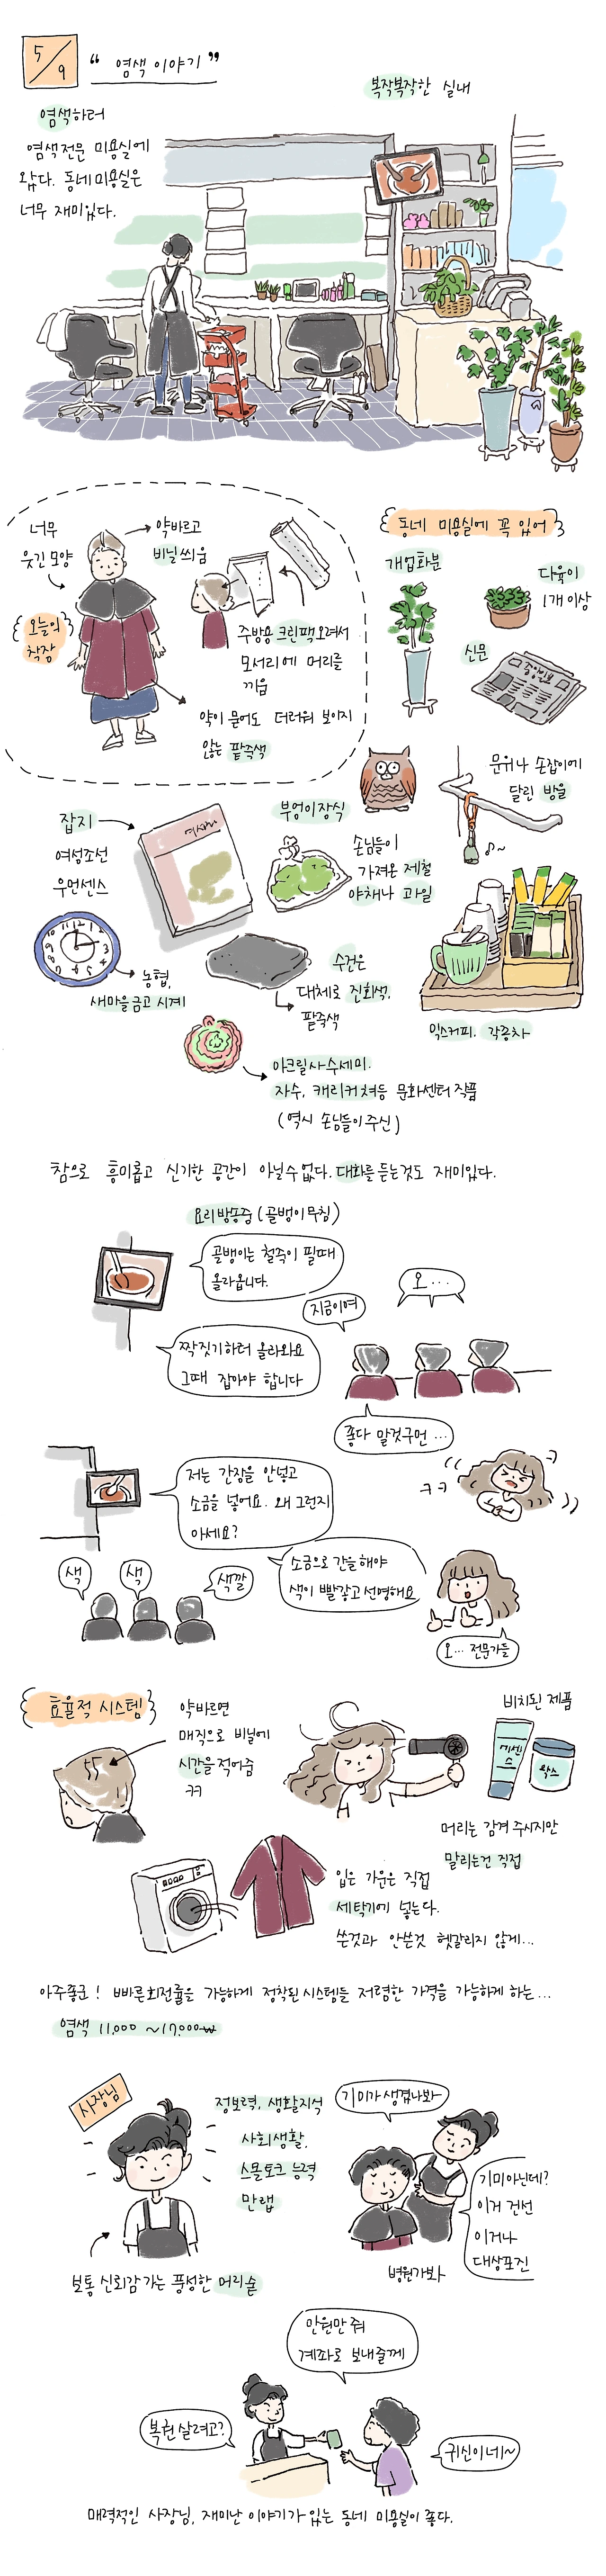 5/9
“염색 이야기”
염색하러
염색전문 미용실에
왔다. 동네 미용실은
너무 재미있다.
복작복작한 실내
너무
웃긴 모양
약바르고
비닐씌움
오늘의
착장
주방용 크린팩 오려서
모서리에 머리를
끼움
약이 묻어도 더러워 보이지
않는 팥죽색
동네 미용실에 꼭 있어
개업화분
다육이
1개 이상
신문
중앙일보
부엉이장식
문위나 손잡이에
달린 방울
♪~
잡지
여성조선
우먼센스
손님들이
가져온 제철
야채나 과일
12 1 2 3 4 5 6 7 8 9 10 11
농협,
새마을금고 시계
수건은
대체로 진회색,
팥죽색
믹스커피, 각종차
아크릴사수세미,
자수, 캐리커쳐등 문화센터 작품
(역시 손님들이 주신)
참으로 흥미롭고 신기한 공간이 아닐수 없다. 대화를 듣는것도 재미있다.
요리방송중 (골뱅이무침)
골뱅이는 철쭉이 필때
올라옵니다.
지금이여
오...
짝짓기하러 올라와요
그때 잡아야 합니다
좋다 말것구먼...
저는 간장을 안넣고
소금을 넣어요. 왜 그런지
아세요?
ㅋㅋ
색
색
색깔
소금으로 간을 해야
색이 빨갛고 선명해요
오... 전문가들
효율적 시스템
약바르면
매직으로 비닐에
시간을 적어줌
ㅋㅋ
비치된 제품
에센스
왁스
머리는 감겨 주시지만
말리는건 직접
입은 가운은 직접
세탁기에 넣는다.
쓴것과 안쓴것 헷갈리지 않게...
아주좋군! 빠른회전률을 가능하게 정착된 시스템들 저렴한 가격을 가능하게 하는...
염색 11,000 ~17,000₩
사장님
정보력, 생활지식
사회생활,
스몰토크 능력
만렙
기미가 생겼나봐
기미아닌데?
이거 건선
이거나
대상포진
보통 신뢰감 가는 풍성한 머리숱
병원가봐
만원만 줘
계좌로 보내줄게
복권 살려고?
귀신이네~
매력적인 사장님, 재미난 이야기가 있는 동네 미용실이 좋다.